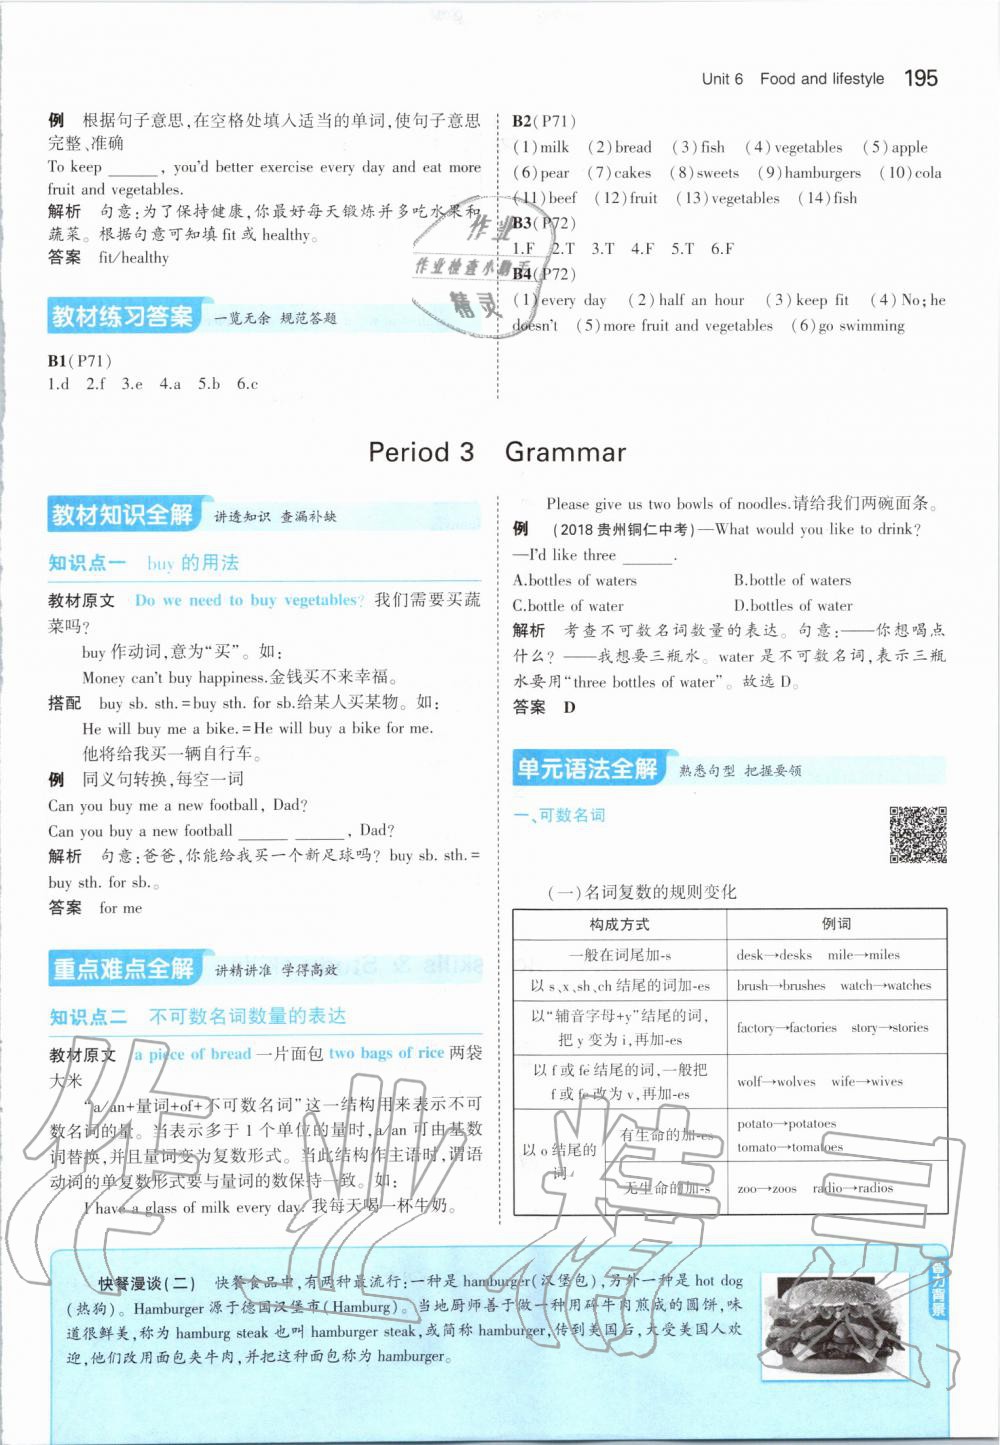 Unit 6 Food and lifestyle 195
例 根据句子意思,在空格处填入适当的单词,使句子意思
完整、准确
To keep ______, you'd better exercise every day and eat more
fruit and vegetables.
解析 句意:为了保持健康,你最好每天锻炼并多吃水果和
蔬菜。根据句意可知填 fit 或 healthy。
答案 fit/healthy
教材练习答案 一览无余 规范答题
B1(P71)
1.d 2.f 3.e 4.a 5.b 6.c
B2(P71)
(1)milk (2)bread (3)fish (4)vegetables (5)apple
(6)pear (7)cakes (8)sweets (9)hamburgers (10)cola
(11)beef (12)fruit (13)vegetables (14)fish
B3(P72)
1.F 2.T 3.T 4.F 5.T 6.F
B4(P72)
(1)every day (2)half an hour (3)keep fit (4)No;he
doesn't (5)more fruit and vegetables (6)go swimming
作业
作业检查小助手
精灵
Period 3 Grammar
教材知识全解 讲透知识 查漏补缺
知识点一 buy 的用法
教材原文 Do we need to buy vegetables? 我们需要买蔬
菜吗?
buy 作动词,意为“买”。如:
Money can't buy happiness.金钱买不来幸福。
搭配 buy sb. sth.=buy sth. for sb.给某人买某物。如:
He will buy me a bike.=He will buy a bike for me.
他将给我买一辆自行车。
例 同义句转换,每空一词
Can you buy me a new football, Dad?
Can you buy a new football ______ ______, Dad?
解析 句意:爸爸,你能给我买一个新足球吗? buy sb. sth.=
buy sth. for sb.。
答案 for me
重点难点全解 讲精讲准 学得高效
知识点二 不可数名词数量的表达
教材原文 a piece of bread 一片面包 two bags of rice 两袋
大米
“a/an+量词+of+不可数名词”这一结构用来表示不可
数名词的量。当表示多于 1 个单位的量时,a/an 可由基数
词替换,并且量词变为复数形式。当此结构作主语时,谓语
动词的单复数形式要与量词的数保持一致。如:
I have a glass of milk every day. 我每天喝一杯牛奶。
Please give us two bowls of noodles.请给我们两碗面条。
例 (2018 贵州铜仁中考)—What would you like to drink?
—I'd like three ______.
A.bottles of waters B.bottle of waters
C.bottle of water D.bottles of water
解析 考查不可数名词数量的表达。句意:——你想喝点
什么? ——我想要三瓶水。water 是不可数名词,表示三瓶
水要用“three bottles of water”。故选 D。
答案 D
单元语法全解 熟悉句型 把握要领
一、可数名词
(一)名词复数的规则变化
构成方式 例词
一般在词尾加-s desk→desks mile→miles
以 s、x、sh、ch 结尾的词加-es brush→brushes watch→watches
以“辅音字母+y”结尾的词,
把 y 变为 i,再加-es
factory→factories story→stories
以 f 或 fe 结尾的词,一般把
f 或 fe 改为 v,再加-es
wolf→wolves wife→wives
以 o 结尾的
词
有生命的加-es
potato→potatoes
tomato→tomatoes
无生命的加-s zoo→zoos radio→radios
快餐漫谈(二) 快餐食品中,有两种最流行:一种是 hamburger(汉堡包),另外一种是 hot dog
(热狗)。Hamburger 源于德国汉堡市(Hamburg)。当地厨师善于做一种用碎牛肉煎成的圆饼,味
道很鲜美,称为 hamburg steak 也叫 hamburger steak,或简称 hamburger,传到美国后,大受美国人欢
迎,他们改用面包夹牛肉,并把这种面包称为 hamburger。
作业精灵